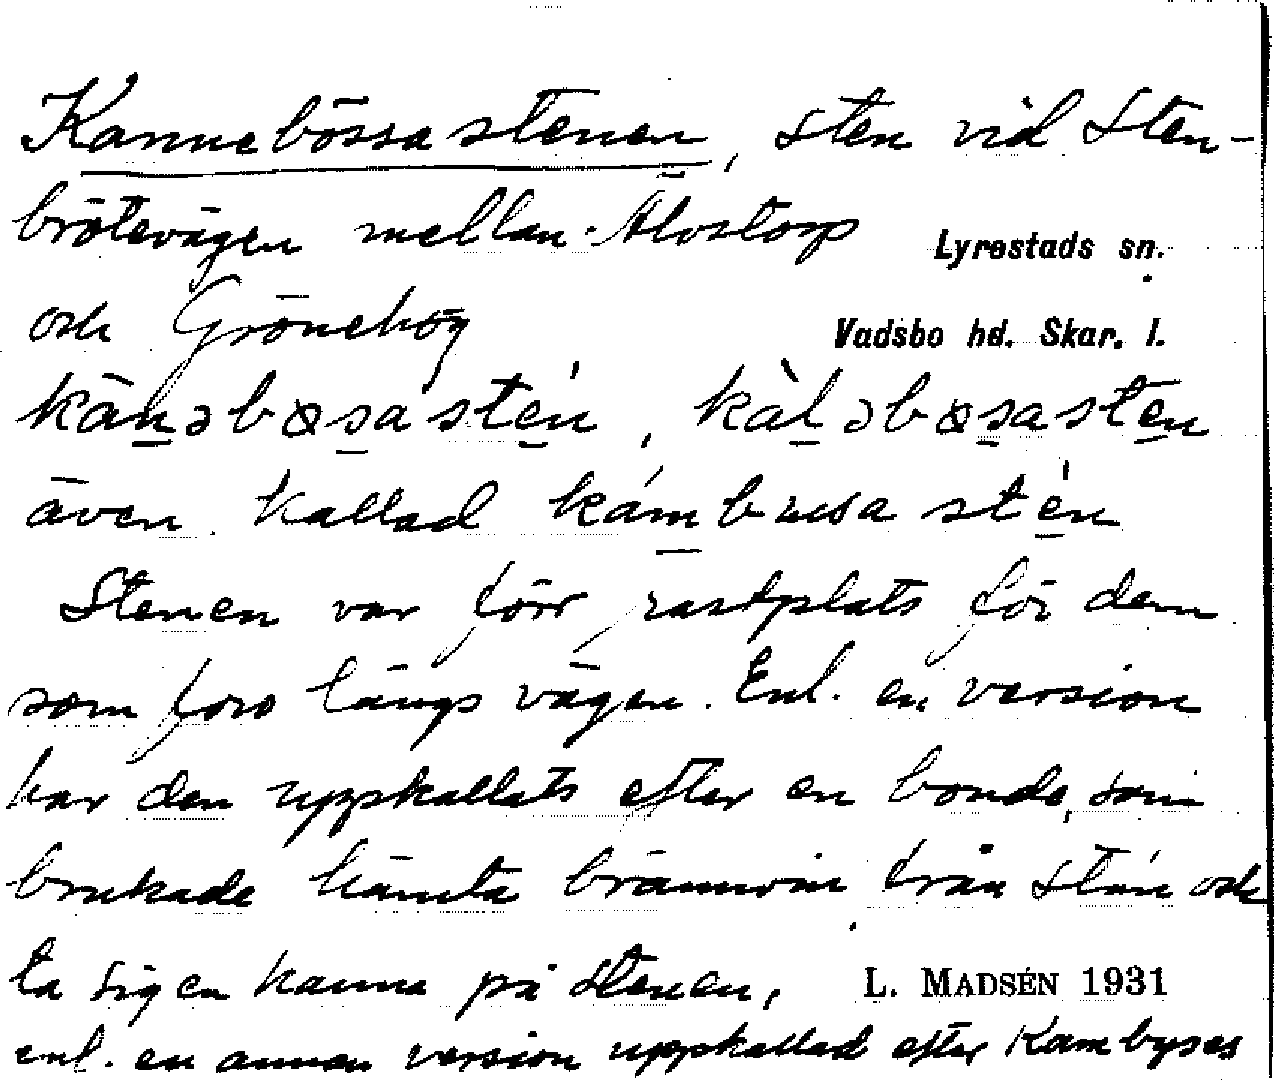 Kannebössastenen, sten vid Sten-
brötevägen mellan Älvstorp
Lyrestads sn.
och Grönehög
Vadsbo hd. Skar. l.
även kallad
Stenen var förr rastplats för dem
som foro längs vägen. Enl. en version
har den uppkallats efter en bonde, som
brukade hämta brännvin från stån och
ta sig en kanna på stenen,
L. MADSÉN 1931
enl. en annan version uppkallad efter Kambyses